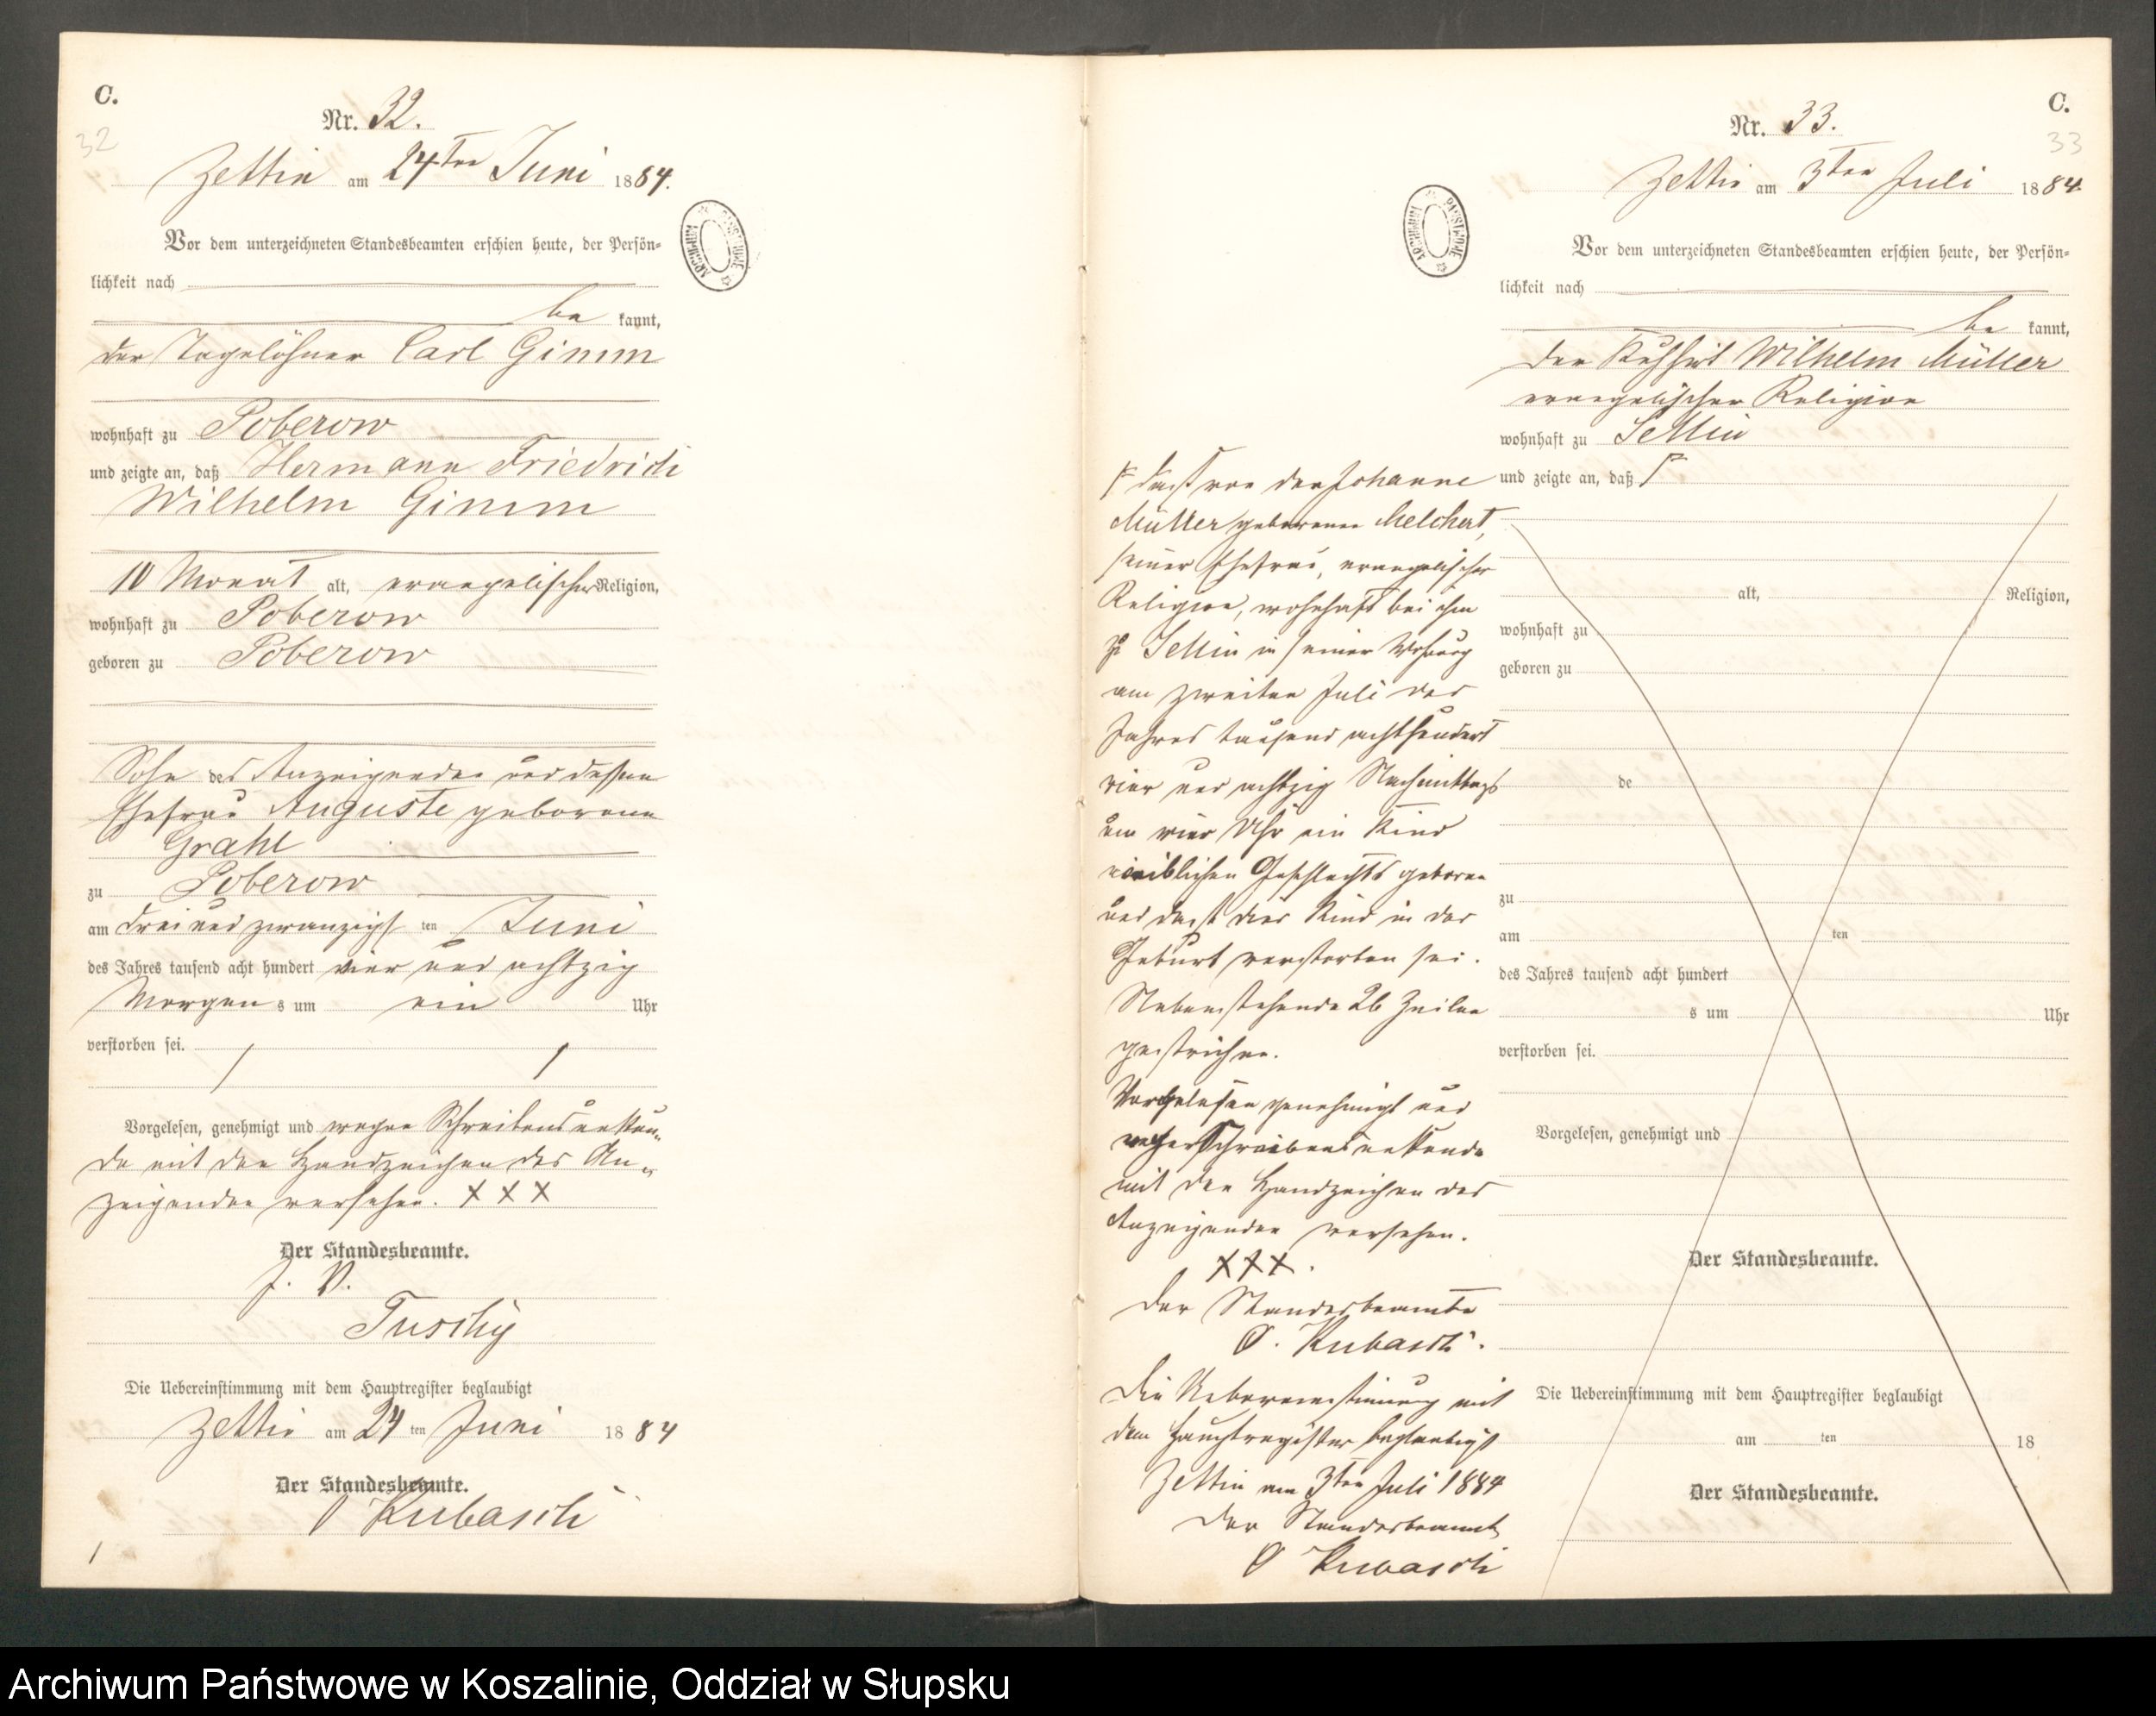 C.
Nr. 32.
32
Zettin am 24ten Juni 1884.
Vor dem unterzeichneten Standesbeamten erschien heute, der Persön-
lichkeit nach
be kannt,
der Tagelöhner Carl Gimm
wohnhaft zu Poberow
und zeigte an, daß Hermann Friedrich
Wilhelm Gimm
10 Monat alt, evangelischer Religion,
wohnhaft zu Poberow
geboren zu Poberow
Sohn des Anzeigenden und dessen
Ehefrau Auguste geborene
Grahl
zu Poberow
am drei und zwanzigsten Juni
des Jahres tausend acht hundert vier und achtzig
Morgens um ein Uhr
verstorben sei.
Vorgelesen, genehmigt und wegen Schreibensunkun-
de mit den Handzeichen des An-
zeigenden versehen. XXX
Der Standesbeamte.
J. V.
Die Uebereinstimmung mit dem Hauptregister beglaubigt
Zettin am 24ten Juni 1884
Der Standesbeamte.
O Kubasch
ARCHIWUM PAŃSTWOWE
C.
Nr. 33.
33
Zettin am 3ten Juli 1884.
ARCHIWUM PAŃSTWOWE
Vor dem unterzeichneten Standesbeamten erschien heute, der Persön-
lichkeit nach
be kannt,
der Kuhhirt Wilhelm Müller
evangelischer Religion
wohnhaft zu Sellin
und zeigte an, daß
alt, Religion,
wohnhaft zu
geboren zu
de
zu
am ten
des Jahres tausend acht hundert
s um Uhr
verstorben sei.
Vorgelesen, genehmigt und
Der Standesbeamte.
Die Uebereinstimmung mit dem Hauptregister beglaubigt
am ten 18
Der Standesbeamte.
dass von der Johanne
Müller geborenen Melchert,
seiner Ehefrau, evangelischer
Religion, wohnhaft bei ihm
zu Sellin in seiner Wohnung
am zweiten Juli des
Jahres tausend achthundert
vier und achtzig Nachmittags
um vier Uhr ein Kind
weiblichen Geschlechts geboren
und dass dies Kind in der
Geburt verstorben sei.
Nebenstehende 26 Zeilen
gestrichen.
Vorgelesen genehmigt und
wegen Schreibensunkunde
mit den Handzeichen des
Anzeigenden versehen.
XXX.
Der Standesbeamte
O. Kubasch.
Die Uebereinstimmung mit
dem Hauptregister beglaubigt
Zettin am 3ten Juli 1884
Der Standesbeamte
O Kubasch
Archiwum Państwowe w Koszalinie, Oddział w Słupsku